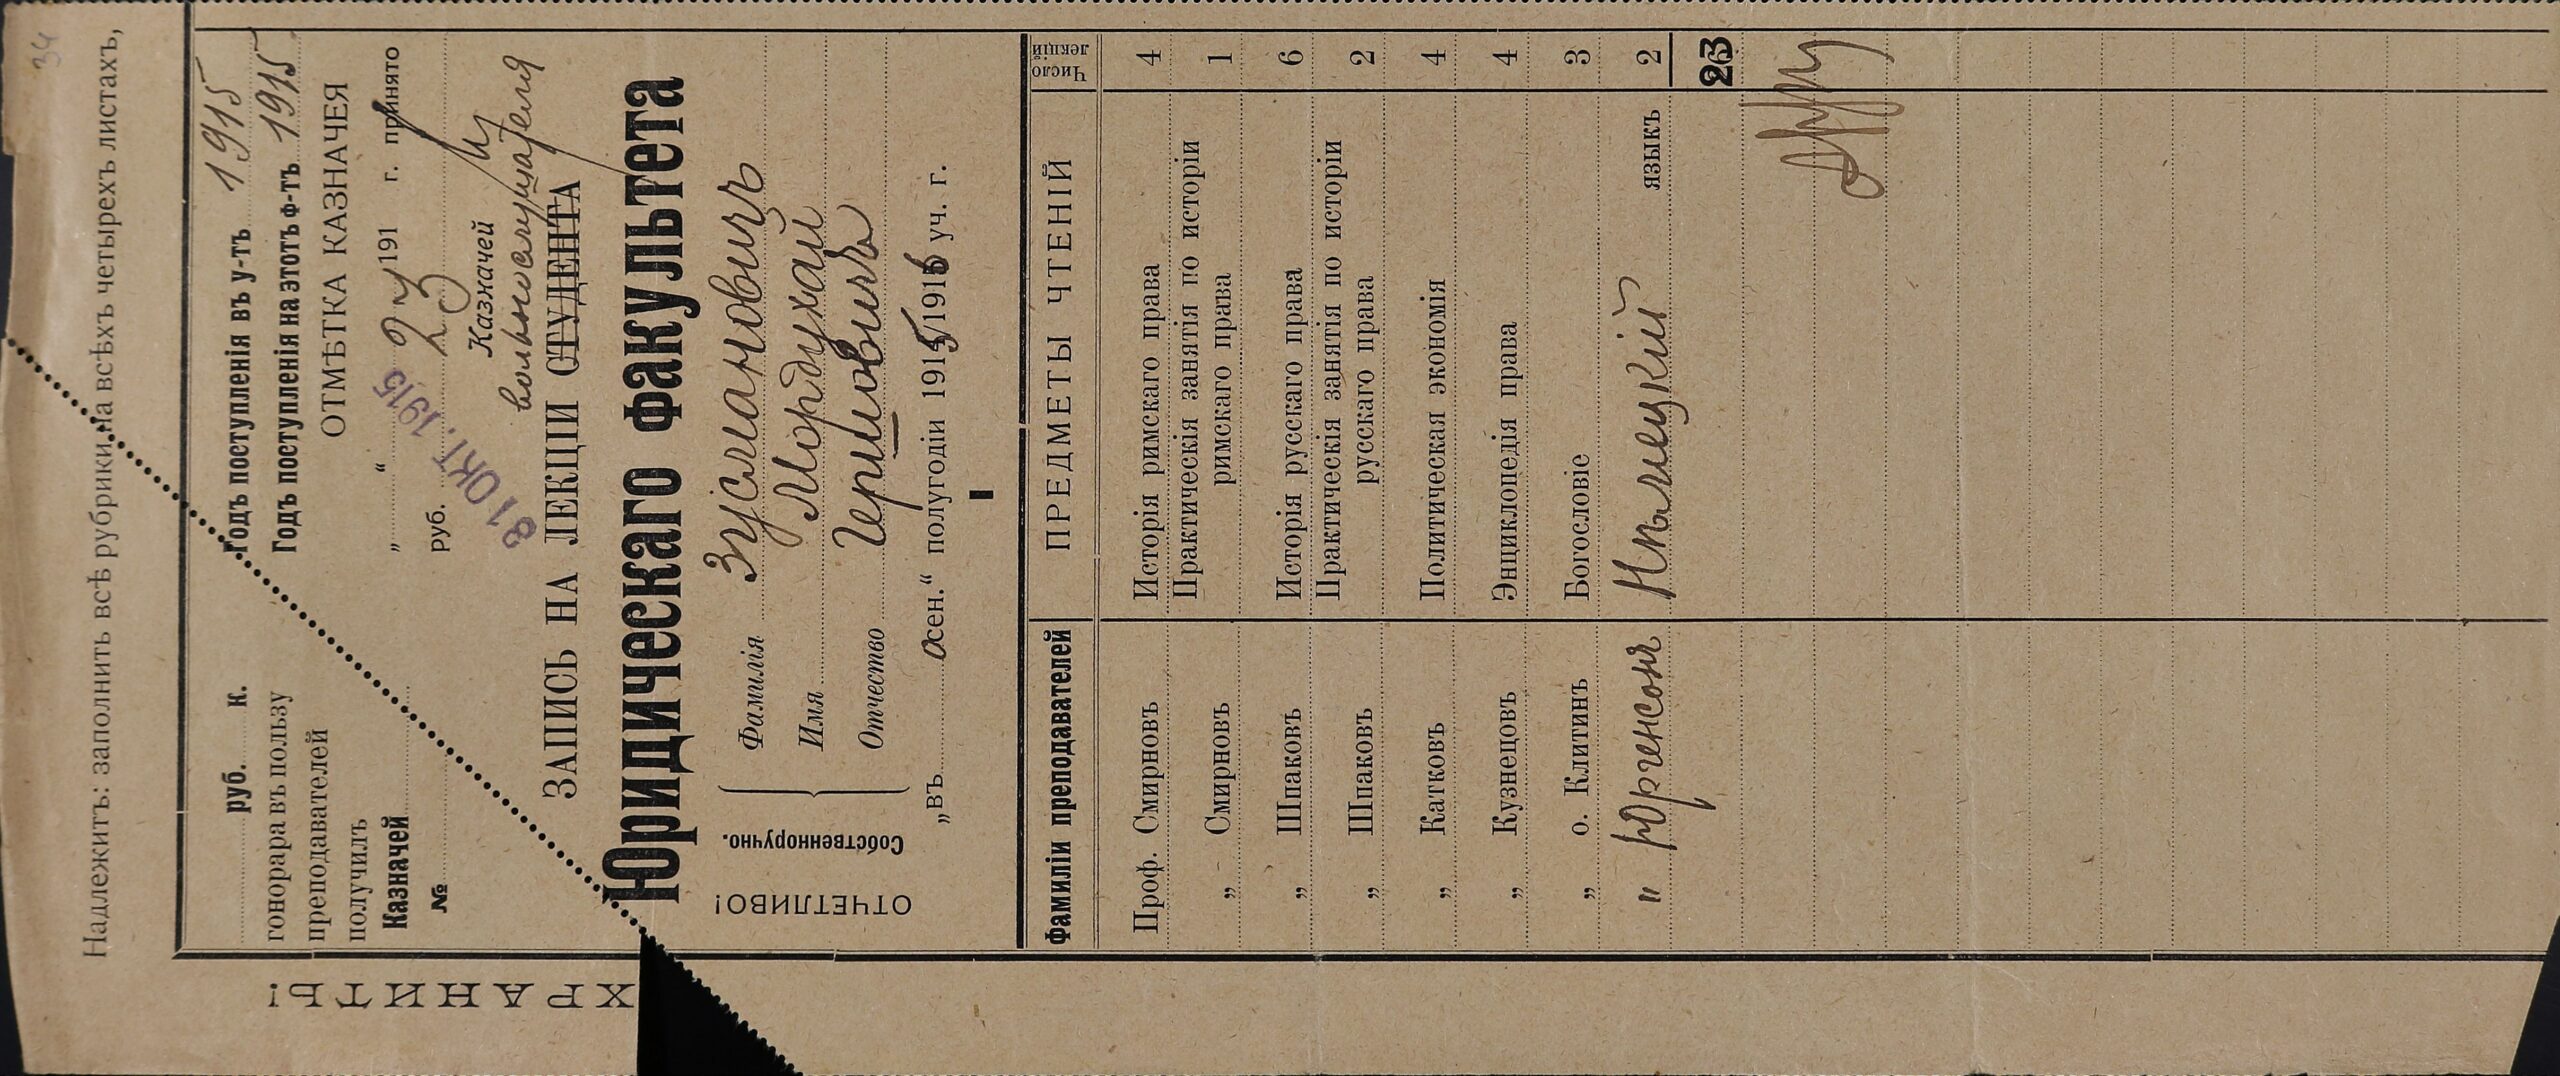 34
Надлежитъ: заполнить всѣ рубрики на всѣхъ четырехъ листахъ,
ХРАНИТЬ!
руб. к.
гонорара въ пользу
преподавателей
получилъ
Казначей
№
Годъ поступленія въ у-тъ 1915
Годъ поступленія на этотъ ф-тъ 1915
ОТМѢТКА КАЗНАЧЕЯ
„ “ 191 г. принято
23
руб.
Казначей
31 ОКТ. 1915
вольнослушателя
ЗАПИСЬ НА ЛЕКЦІИ СТУДЕНТА
Юридическаго факультета
ОТЧЕТЛИВО!
Собственноручно.
Фамилія Зусмановичъ
Имя Мордухай
Отчество Гершовичъ
„въ осен.“ полугодіи 1915/1916 уч. г.
Фамиліи преподавателей ПРЕДМЕТЫ ЧТЕНІЙ Число лекцій
Проф. Смирновъ Исторія римскаго права 4
„ Смирновъ Практическія занятія по исторіи римскаго права 1
„ Шпаковъ Исторія русскаго права 6
„ Шпаковъ Практическія занятія по исторіи русскаго права 2
„ Катковъ Политическая экономія 4
„ Кузнецовъ Энциклопедія права 4
„ о. Клитинъ Богословіе 3
„ Юргенсонъ Нѣмецкій языкъ 2